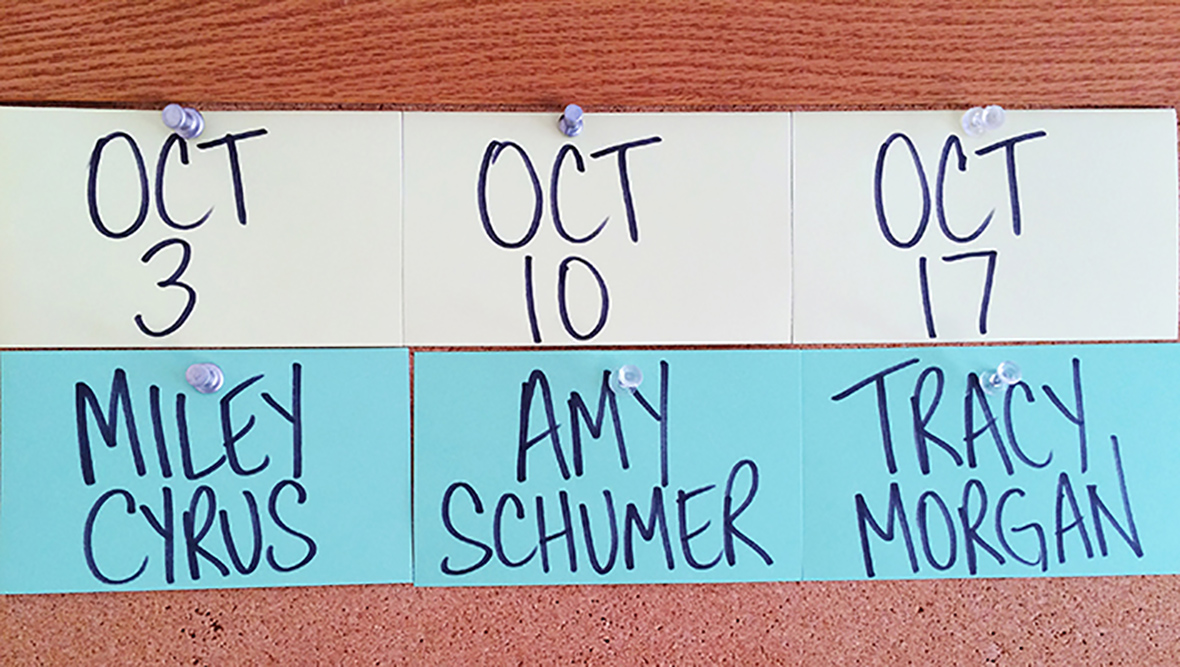 OCT
3
OCT
10
OCT
17
MILEY
CYRUS
AMY
SCHUMER
TRACY
MORGAN